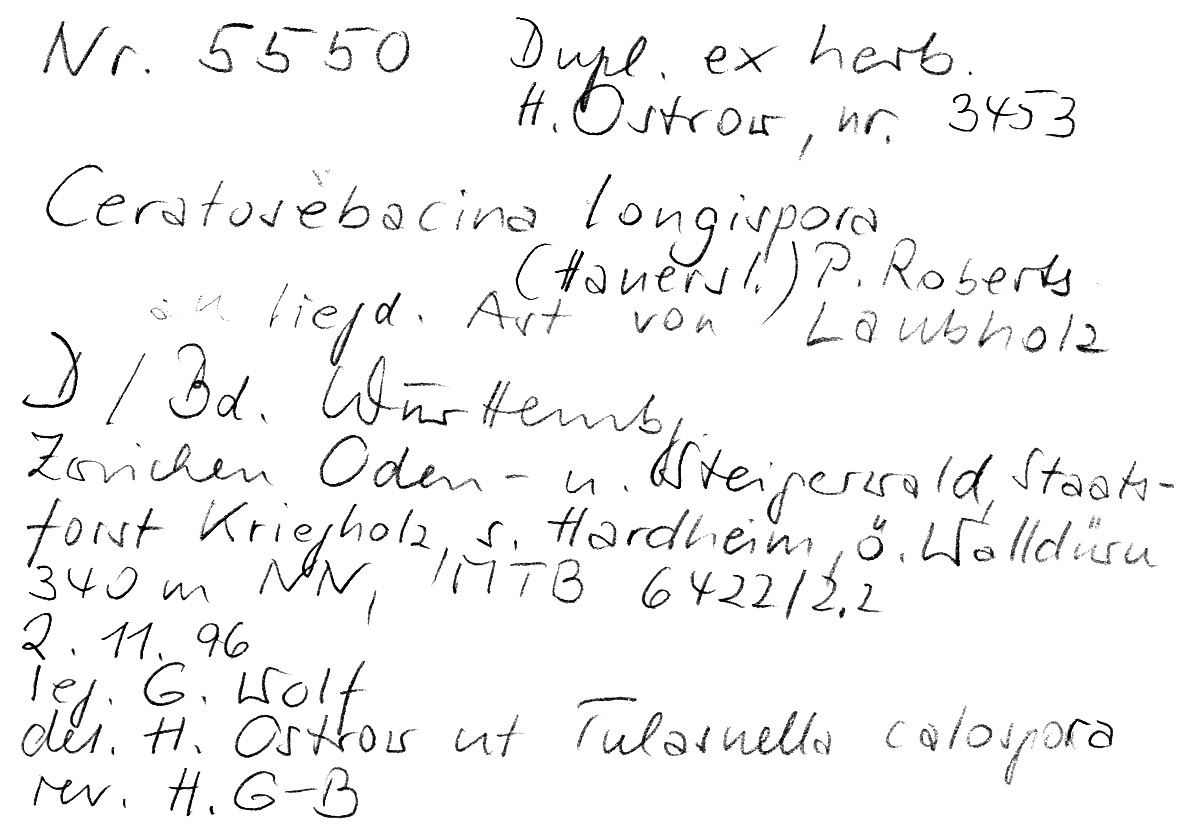 Nr. 5550 Dupl. ex herb.
H. Ostrow, nr. 3453
Ceratosebacina longispora
(Hauersl.) P. Roberts
an liegd. Ast von Laubholz
D / Bd. Württemb.
Zwischen Oden- u. Steigerwald, Staats-
forst Kriegholz, s. Hardheim, ö. Walldürn
340 m NN, MTB 6422/2.2
2. 11. 96
leg. G. Wolf
det. H. Ostrow ut Tulasnella calospora
rev. H. G-B